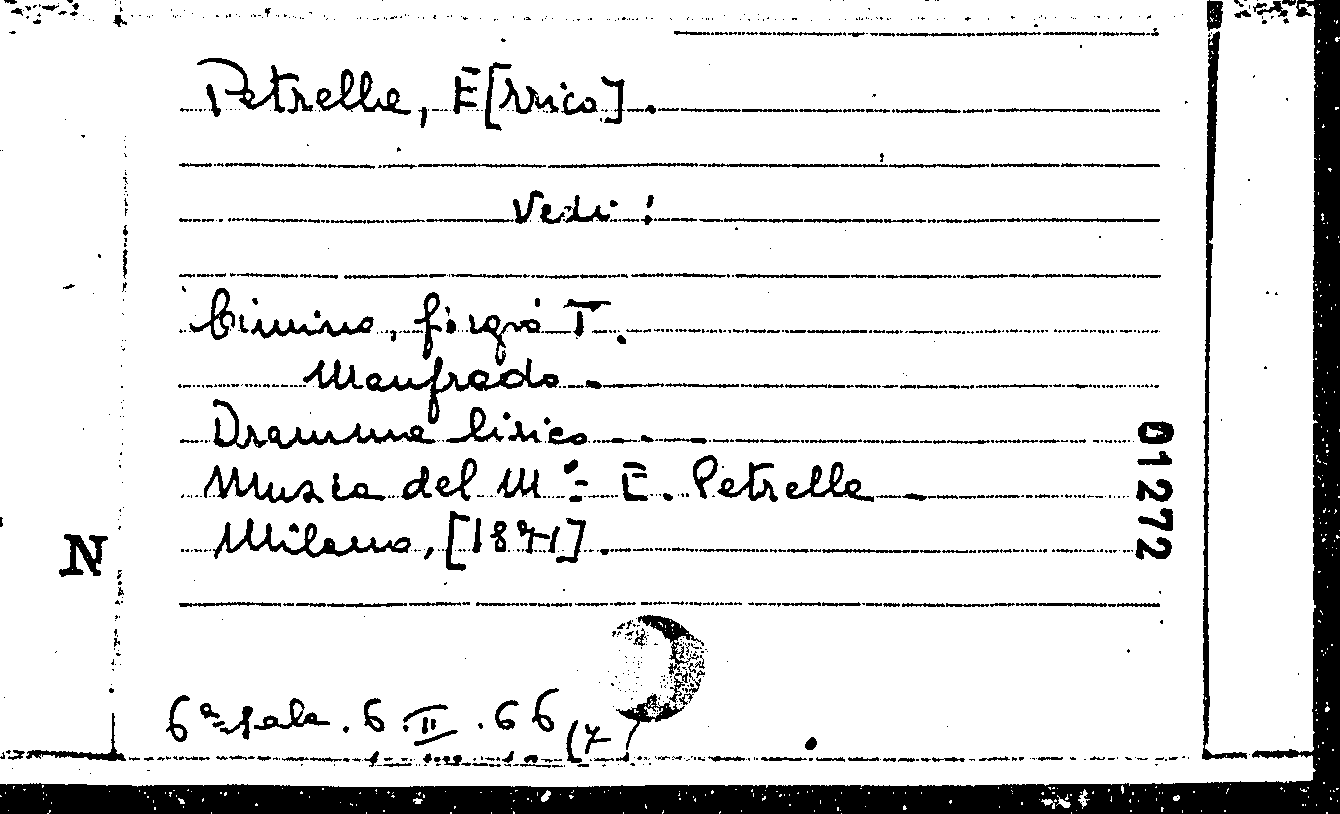 Petrella, E[rrico].
Vedi:
Cimino, Giorgio T.
Manfredo.
Dramma lirico...
Musica del Mº: E. Petrella -
Milano, [1871].
01272
N
6ª sala. 6.II.66(7)